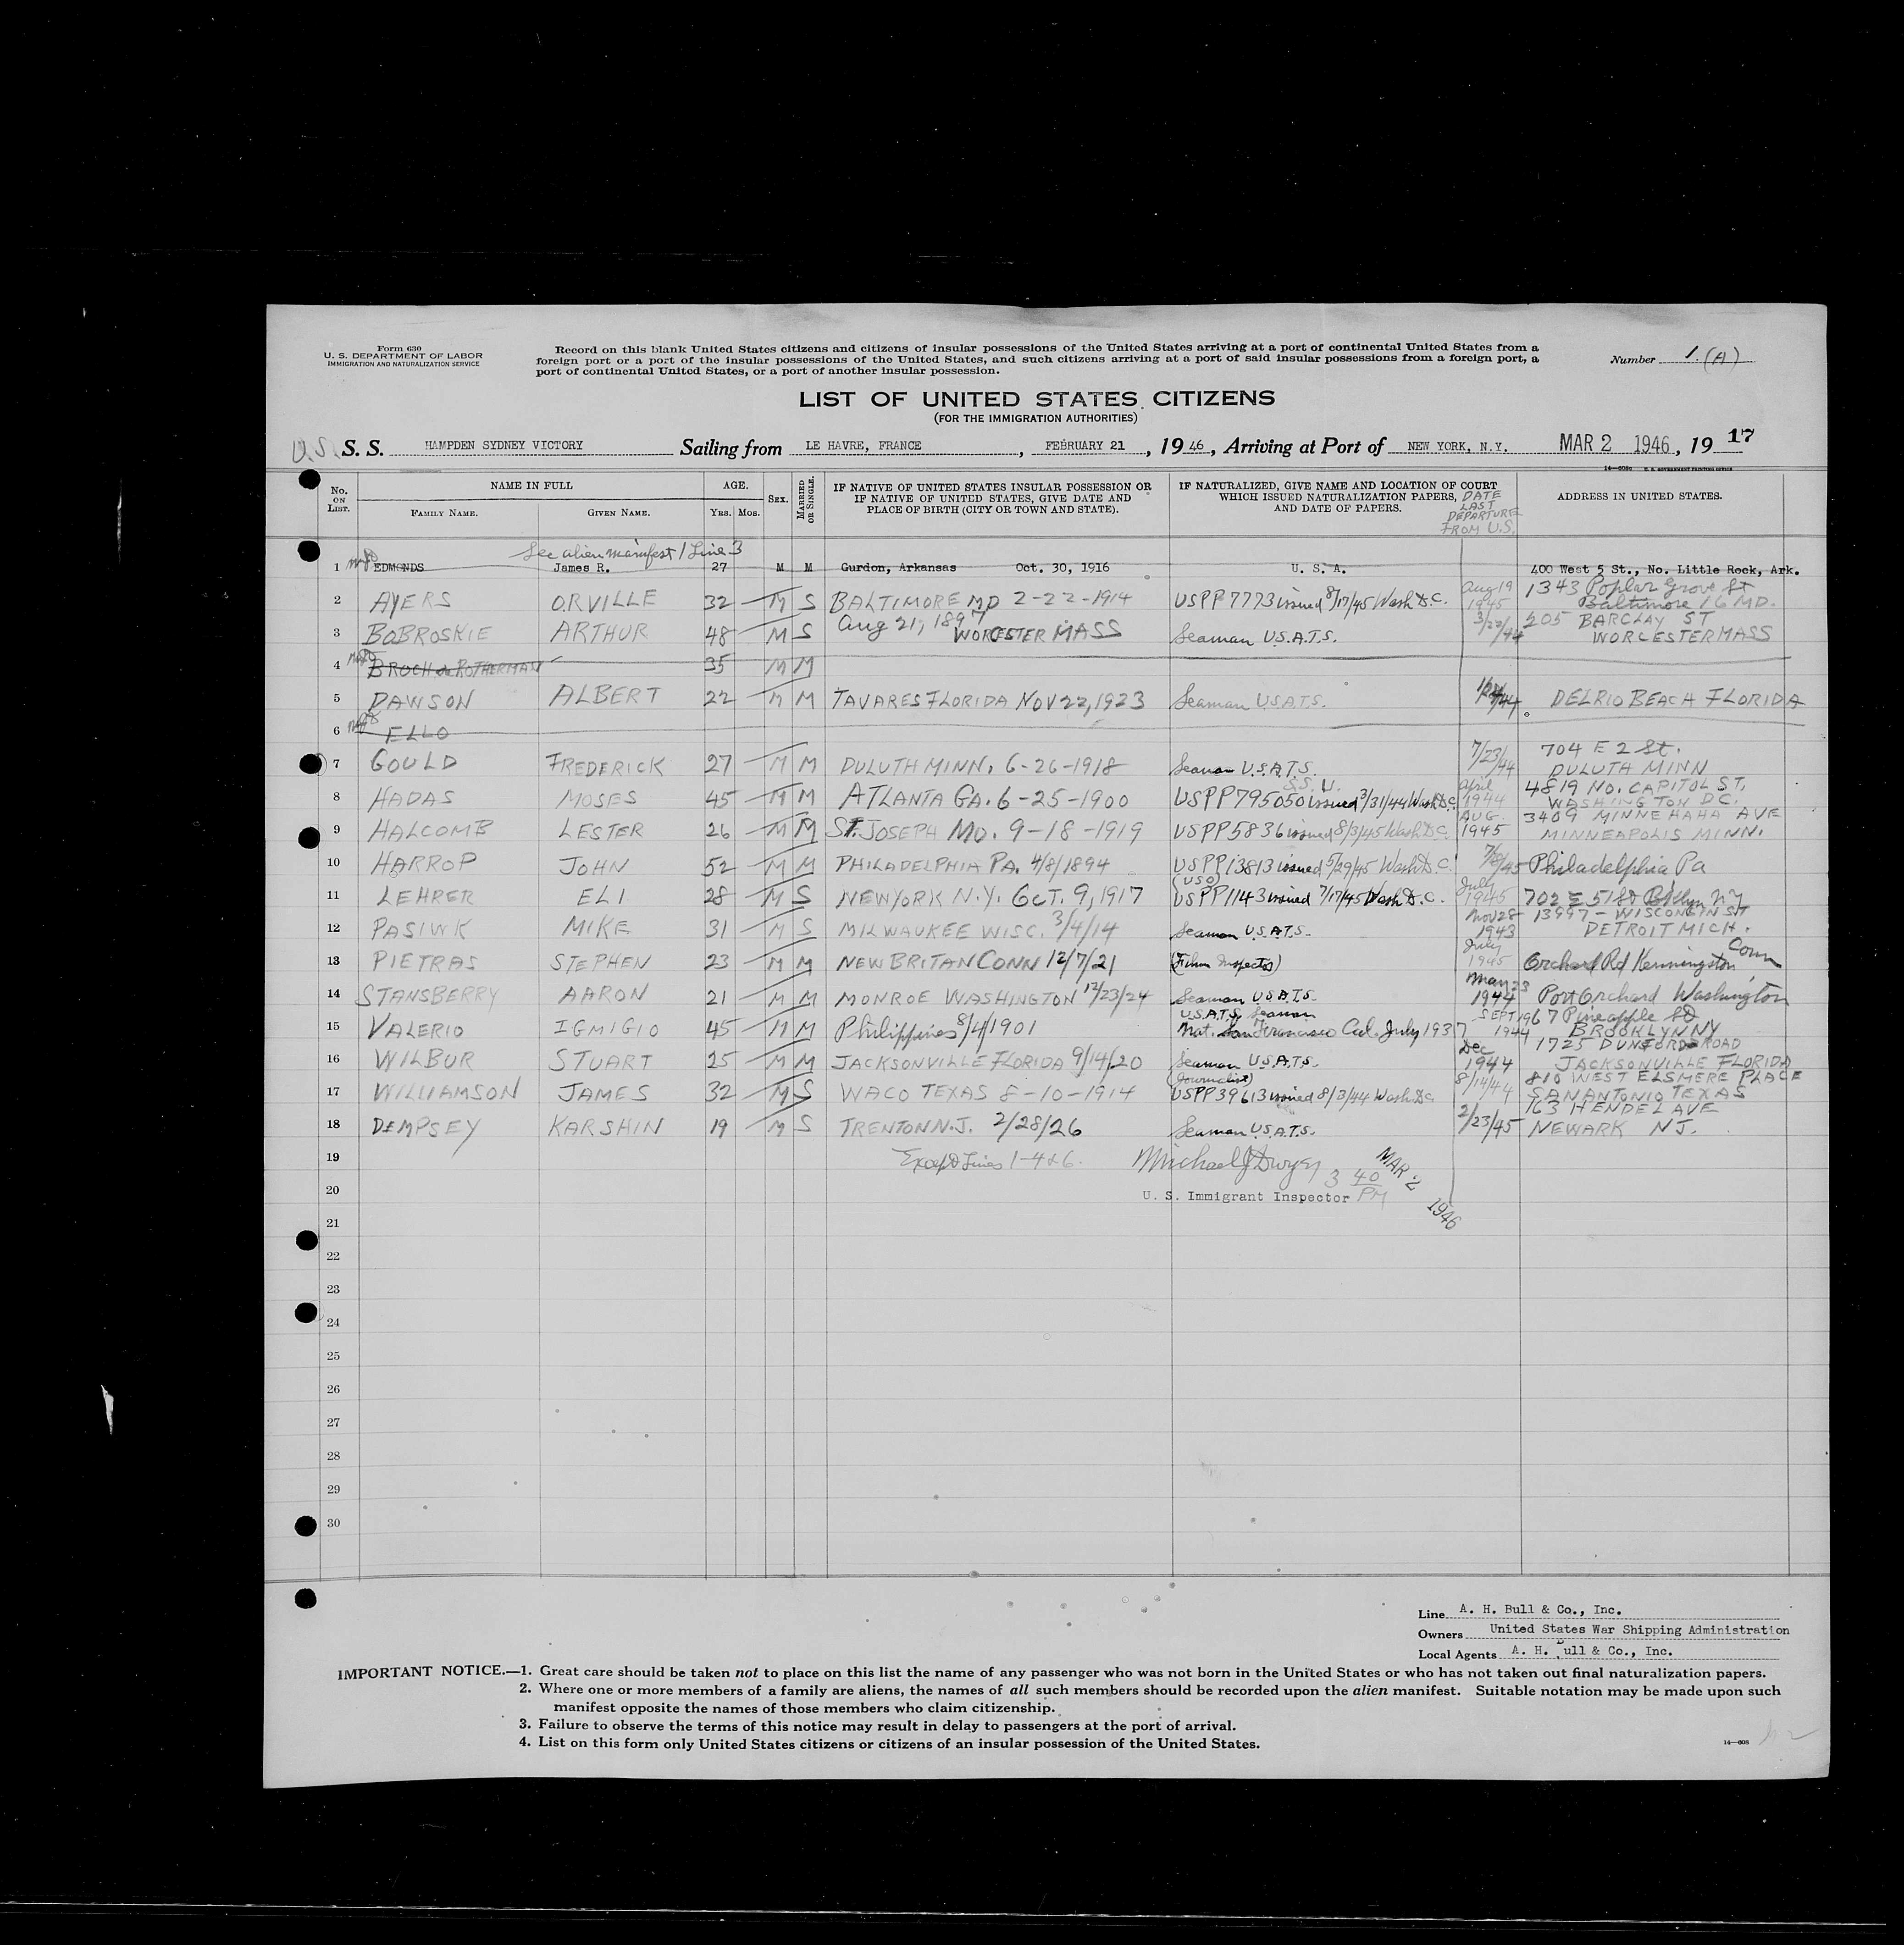 Form 630
U. S. DEPARTMENT OF LABOR
IMMIGRATION AND NATURALIZATION SERVICE
Record on this blank United States citizens and citizens of insular possessions of the United States arriving at a port of continental United States from a
foreign port or a port of the insular possessions of the United States, and such citizens arriving at a port of said insular possessions from a foreign port, a
port of continental United States, or a port of another insular possession.
Number 1. (A)
LIST OF UNITED STATES CITIZENS
(FOR THE IMMIGRATION AUTHORITIES)
U.S. S. S. HAMPDEN SYDNEY VICTORY Sailing from LE HAVRE, FRANCE, FEBRUARY 21, 1946, Arriving at Port of NEW YORK, N.Y. MAR 2 1946, 19 17
14—608a U. S. GOVERNMENT PRINTING OFFICE
No. ON LIST. NAME IN FULL FAMILY NAME. GIVEN NAME. AGE. Yrs. Mos. SEX. MARRIED OR SINGLE. IF NATIVE OF UNITED STATES INSULAR POSSESSION OR IF NATIVE OF UNITED STATES, GIVE DATE AND PLACE OF BIRTH (CITY OR TOWN AND STATE). IF NATURALIZED, GIVE NAME AND LOCATION OF COURT WHICH ISSUED NATURALIZATION PAPERS, AND DATE OF PAPERS. DATE LAST DEPARTURE FROM U.S. ADDRESS IN UNITED STATES.
See alien manifest 1 Line 3
1 EDMONDS James R. 27 M M Gurdon, Arkansas Oct. 30, 1916 U. S. A. 400 West 5 St., No. Little Rock, Ark.
2 AYERS ORVILLE 32 M S BALTIMORE MD 2-22-1914 USPP 7773 issued 8/17/45 Wash D.C. Aug 19 1945 1343 Poplar Grove St Baltimore 16 MD.
3 BOBROSKIE ARTHUR 48 M S Aug 21, 1897 WORCESTER MASS Seaman U.S.A.T.S. 3/22/44 205 BARCLAY ST WORCESTER MASS
4 BROCH de ROTHERMAN 35 M M
5 DAWSON ALBERT 22 M M TAVARES FLORIDA NOV 22, 1923 Seaman U.S.A.T.S. DELRIO BEACH FLORIDA
6 ELLO
7 GOULD FREDERICK 27 M M DULUTH MINN. 6-26-1918 Seaman U.S.A.T.S. 7/23/44 704 E 2 St. DULUTH MINN
8 HADAS MOSES 45 M M ATLANTA GA. 6-25-1900 S.S.U. USPP 795050 issued 3/31/44 Wash DC. April 1944 4819 NO. CAPITOL ST. WASHINGTON DC.
9 HALCOMB LESTER 26 M M ST. JOSEPH MO. 9-18-1919 USPP 5836 issued 8/3/45 Wash D.C. AUG. 1945 3409 MINNEHAHA AVE MINNEAPOLIS MINN.
10 HARROP JOHN 52 M M PHILADELPHIA PA. 4/8/1894 USPP 13813 issued 5/29/45 Wash D.C. 7/8/45 Philadelphia Pa
11 LEHRER ELI 28 M S NEW YORK N.Y. OCT. 9, 1917 (USO) USPP 1143 issued 7/17/45 Wash D.C. July 1945 702 E 51 St Bklyn NY
12 PASIWK MIKE 31 M S MILWAUKEE WISC. 3/4/14 Seaman U.S.A.T.S. Nov 28 1943 13997 - WISCONSIN ST DETROIT MICH.
13 PIETRAS STEPHEN 23 M M NEW BRITAN CONN 12/7/21 (Film Inspector) July 1945 Orchard Rd Kennington Conn
14 STANSBERRY AARON 21 M M MONROE WASHINGTON 12/23/24 Seaman U.S.A.T.S. May 23 1944 Port Orchard Washington
15 VALERIO IGMIGIO 45 M M Philippines 8/4/1901 U.S.A.T.S. Seaman Nat. San Francisco Cal. July 1937 SEPT 1944 67 Pineapple St BROOKLYN NY
16 WILBUR STUART 25 M M JACKSONVILLE FLORIDA 9/14/20 Seaman U.S.A.T.S. Dec 1944 1725 DUNFORD ROAD JACKSONVILLE FLORIDA
17 WILLIAMSON JAMES 32 M S WACO TEXAS 8-10-1914 (Journalist) USPP 39613 issued 8/3/44 Wash DC 8/14/44 810 WEST ELSMERE PLACE SAN ANTONIO TEXAS
18 DEMPSEY KARSHIN 19 M S TRENTON N.J. 2/28/26 Seaman U.S.A.T.S. 2/23/45 163 HENDEL AVE NEWARK NJ.
19 Except Lines 1-4 & 6. Michael J Dwyer 3 40 PM MAR 2 1946
20 U. S. Immigrant Inspector
21
22
23
24
25
26
27
28
29
30
Line A. H. Bull & Co., Inc.
Owners United States War Shipping Administration
Local Agents A. H. Bull & Co., Inc.
IMPORTANT NOTICE.—1. Great care should be taken not to place on this list the name of any passenger who was not born in the United States or who has not taken out final naturalization papers.
2. Where one or more members of a family are aliens, the names of all such members should be recorded upon the alien manifest. Suitable notation may be made upon such
manifest opposite the names of those members who claim citizenship.
3. Failure to observe the terms of this notice may result in delay to passengers at the port of arrival.
4. List on this form only United States citizens or citizens of an insular possession of the United States.
14—608